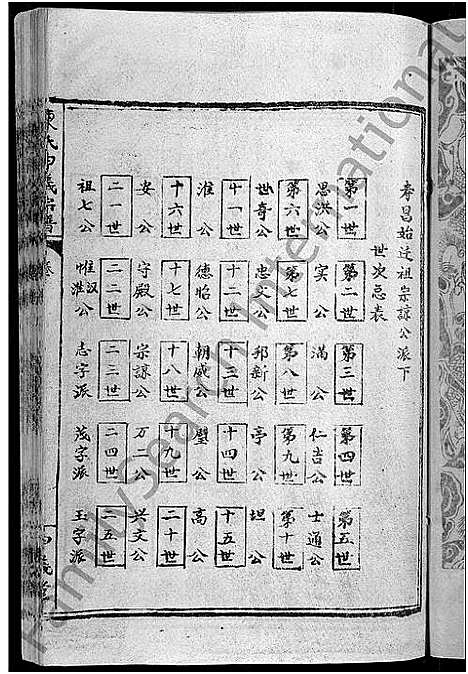 孝昌始迁祖宗諒公派下
世次总表
第一世 第二世 第三世 第四世 第五世
思洪公 实公 满公 仁吉公 士通公
第六世 第七世 第八世 第九世 第十世
世奇公 忠文公 邦新公 亭公 坦公
十一世 十二世 十三世 十四世 十五世
淮公 德怡公 朝威公 璧公 高公
十六世 十七世 十八世 十九世 二十世
安公 守殿公 宗諒公 万一公 兴文公
二一世 二二世 二三世 二四世 二五世
祖七公 惟汉公 惟淮公 志字派 茂字派 玉字派
FamilySearch International